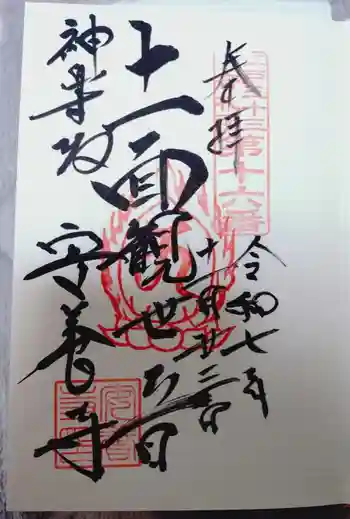 奉拝
江戸三十三
第十六番
令和七年
十一月廿三日
十一面観世音
神楽坂
安養寺